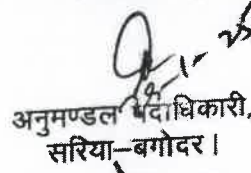 अनुमण्डल पदाधिकारी,
सरिया–बगोदर।